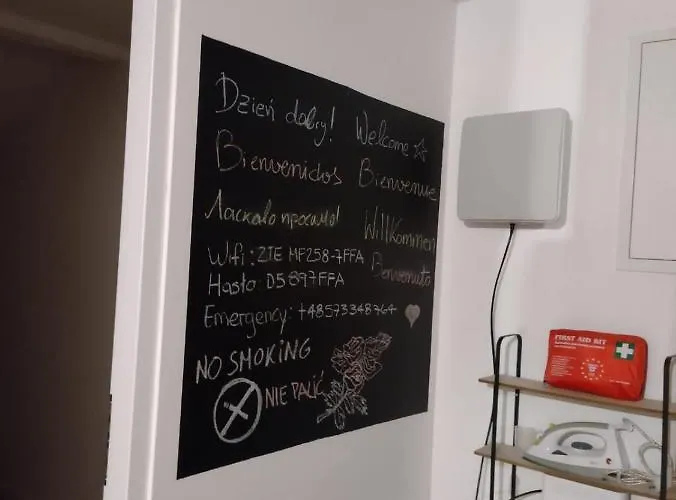 Dzień dobry!
Welcome
Bienvenidos
Bienvenue
Ласкаво просимо!
Willkommen
Benvenuto
Wifi: ZTE MF258-7FFA
Hasło: D5897FFA
Emergency: +48573348764
NO SMOKING
NIE PALIĆ
FIRST AID KIT